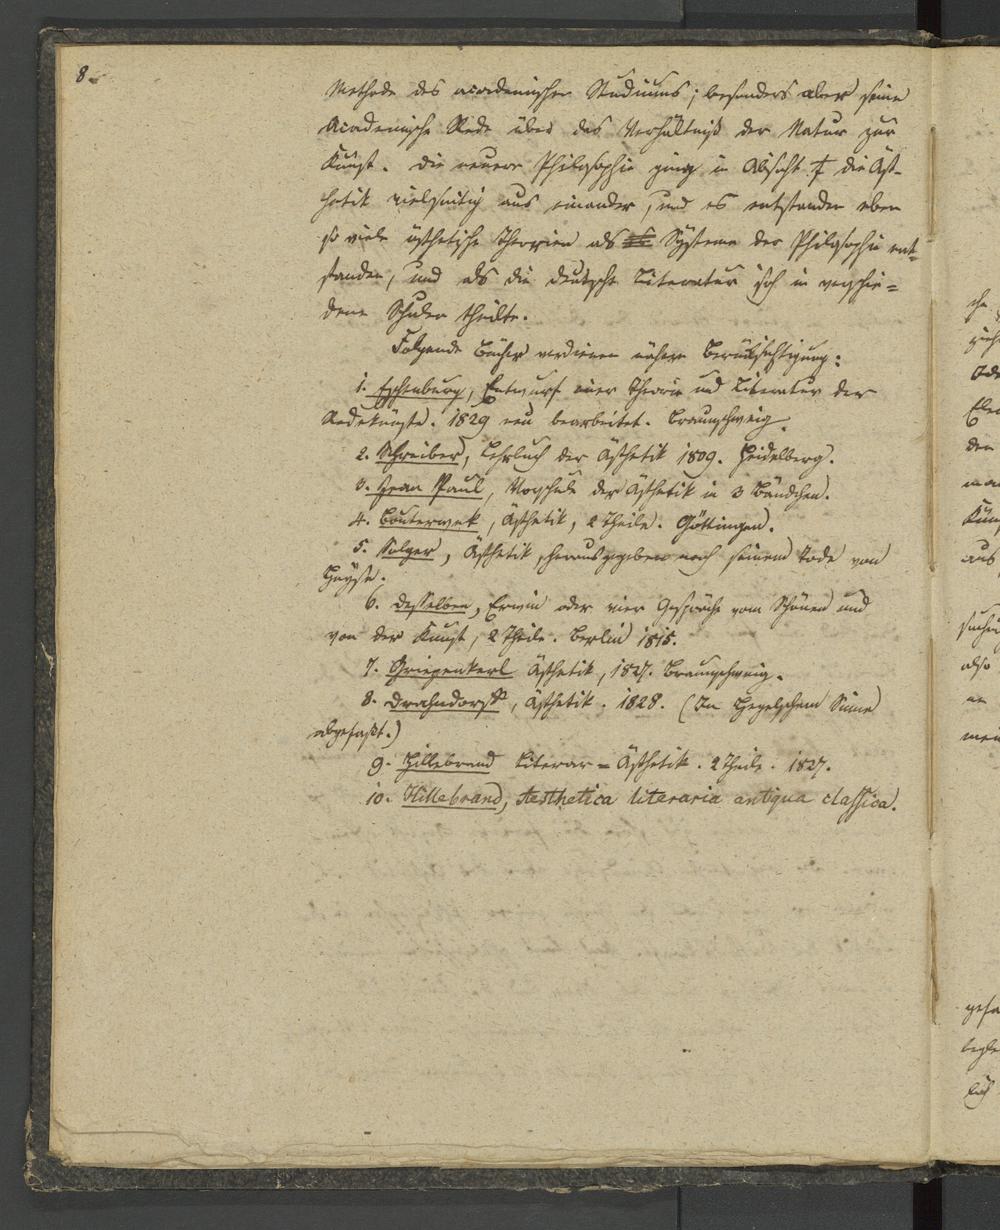 8.
Methode des academischen Studiums; besonders aber seine
Academische Rede über das Verhältniß der Natur zur
Kunst. Die neuere Philosophie ging in Absicht die Äst-
hetik vielseitig aus einander, und es entstanden eben
so viele ästhetische Theorien als Systeme der Philosophie ent-
standen, und als die deutsche Literatur sich in verschie-
dene Schulen theilte.
Folgende Bücher verdienen nähere Berücksichtigung:
1. Eschenburg, Entwurf einer Theorie und Literatur der
Redekünste. 1829 neu bearbeitet. Braunschweig.
2. Schreiber, Lehrbuch der Ästhetik 1809. Heidelberg.
3. Jean Paul, Vorschule der Ästhetik in 3 Bändchen.
4. Bouterwek, Ästhetik, 2 Theile. Göttingen.
5. Solger, Ästhetik, herausgegeben nach seinem Tode von
Heyse.
6. Desselben, Erwin oder vier Gespräche vom Schönen und
von der Kunst, 2 Theile. Berlin 1815.
7. Griepenkerl Ästhetik, 1827. Braunschweig.
8. Drahndorff, Ästhetik. 1828. (In Hegelschem Sinne
abgefaßt.)
9. Hillebrand Literar-Ästhetik. 2 Theile. 1827.
10. Hillebrand, Aesthetica literaria antiqua classica.